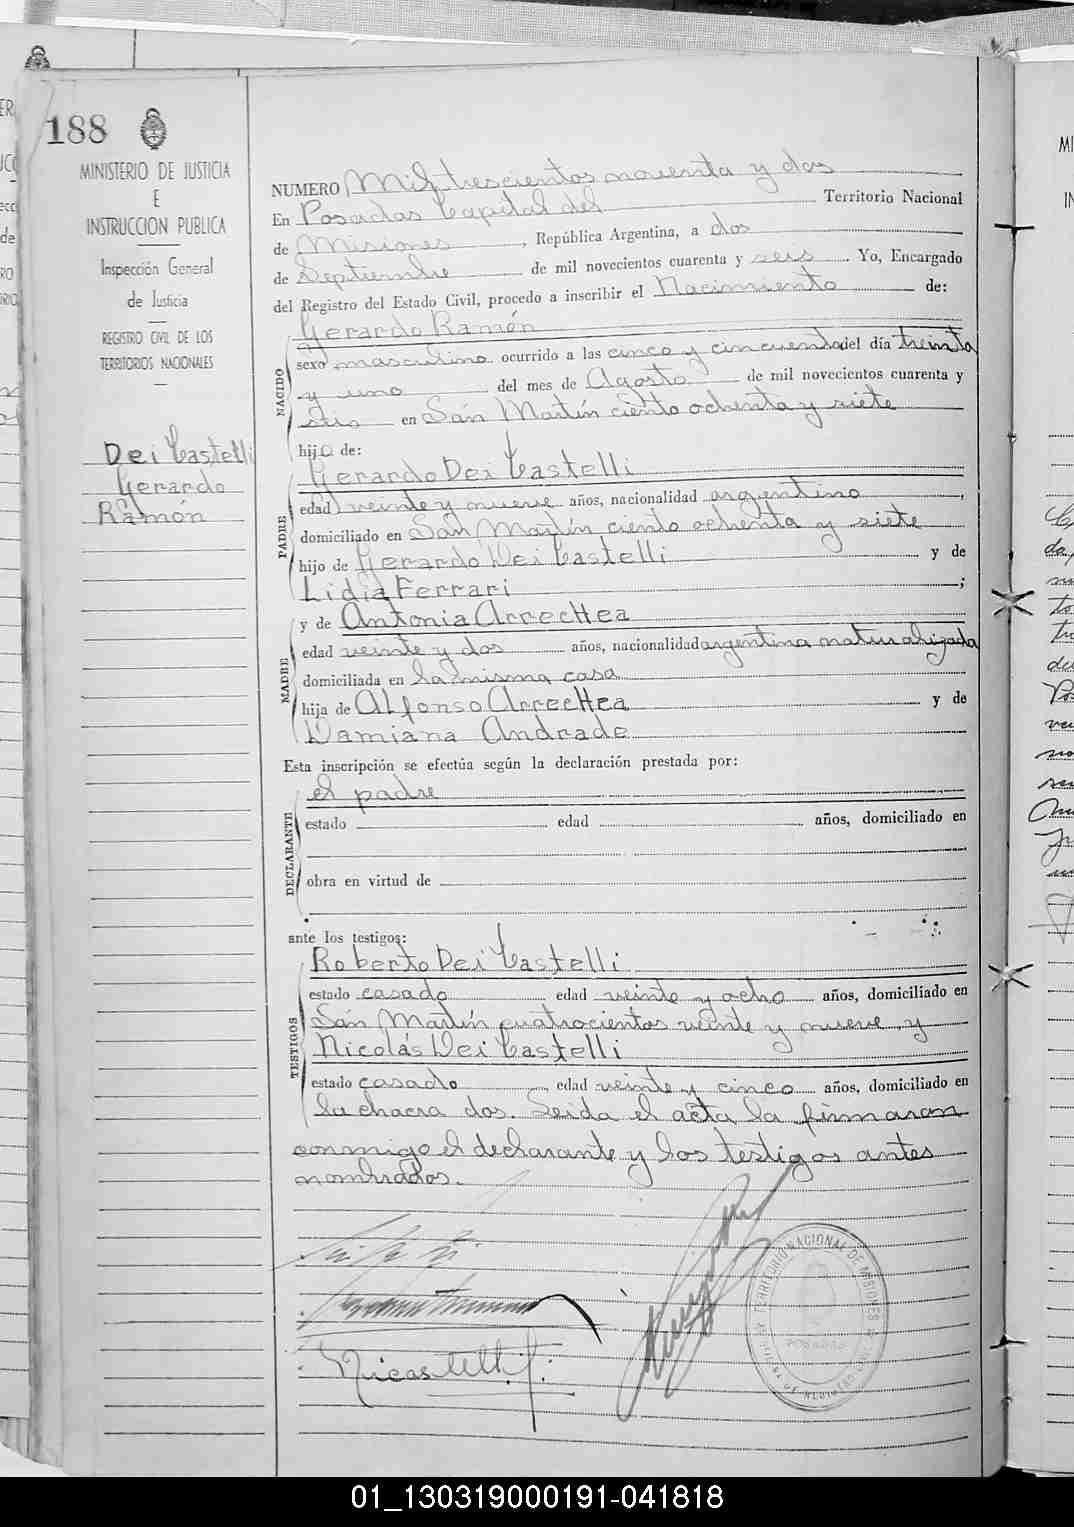 188
MINISTERIO DE JUSTICIA
E
INSTRUCCION PUBLICA
Inspección General
de Justicia
REGISTRO CIVIL DE LOS
TERRITORIOS NACIONALES
Dei Castelli
Gerardo
Ramón
NUMERO Mil trescientos noventa y dos
En Posadas Capital del Territorio Nacional
de Misiones, República Argentina, a dos
de Septiembre de mil novecientos cuarenta y seis. Yo, Encargado
del Registro del Estado Civil, procedo a inscribir el Nacimiento de:
Gerardo Ramón
NACIDO
sexo masculino ocurrido a las cinco y cincuenta del día treinta
y uno del mes de Agosto de mil novecientos cuarenta y
seis en San Martín ciento ochenta y siete
hijo de:
Gerardo Dei Castelli
PADRE
edad veinte y nueve años, nacionalidad argentino,
domiciliado en San Martín ciento ochenta y siete
hijo de Gerardo Dei Castelli y de
Lidia Ferrari;
y de Antonia Arrechea
MADRE
edad veinte y dos años, nacionalidad argentina naturalizada
domiciliada en la misma casa
hija de Alfonso Arrechea y de
Damiana Andrade
Esta inscripción se efectúa según la declaración prestada por:
el padre
DECLARANTE
estado edad años, domiciliado en
obra en virtud de
ante los testigos:
Roberto Dei Castelli
TESTIGOS
estado casado edad veinte y ocho años, domiciliado en
San Martín cuatrocientos veinte y nueve y
Nicolás Dei Castelli
estado casado, edad veinte y cinco años, domiciliado en
la chacra dos. Leida el acta la firmaron
conmigo el declarante y los testigos antes
nombrados.
TERRITORIO NACIONAL DE MISIONES
POSADAS
01_130319000191-041818